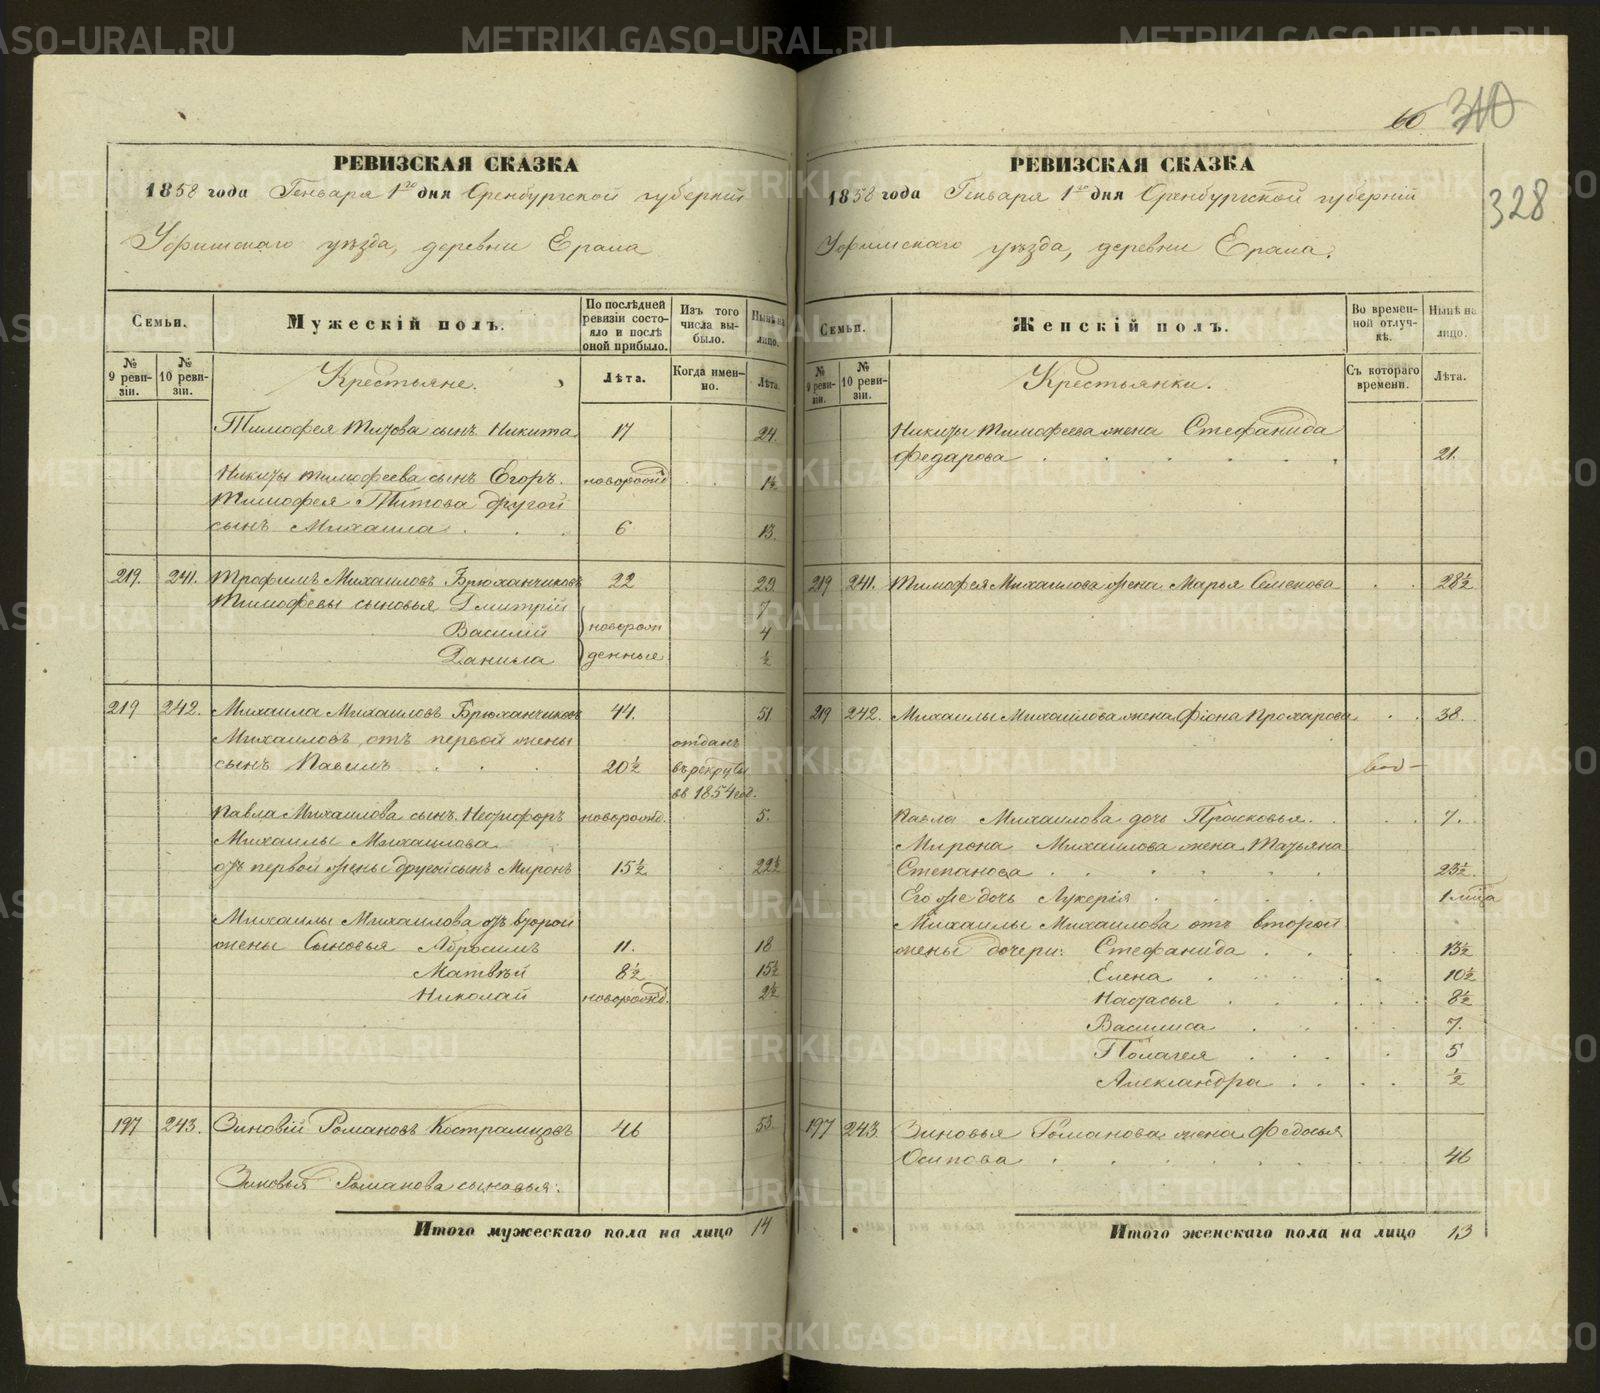 60 310
328
РЕВИЗСКАЯ СКАЗКА
1858 года Генваря 1го дня Оренбургской губерніи
Уфимскаго уѣзда, деревни Ерала
Семьи.
Мужескій полъ.
По послѣдней ревизіи состояло и послѣ оной прибыло.
Изъ того числа выбыло.
Нынѣ на лицо.
№ 9 ревизіи.
№ 10 ревизіи.
Крестьяне.
Лѣта.
Когда именно.
Лѣта.
Тимофея Титова сынъ Никита 17 24.
Никиты Тимофеева сынъ Егоръ. новорожд
Тимофея Титова другой
сынъ Михаила 6 13.
219. 241. Трофимъ Михаиловъ Брюханчиковъ 22 29
Тимофеевы сыновья Дмитрій 7
Василій новорож 4
Данила денные ½
219 242. Михаила Михаиловъ Брюханчиковъ 44. 51
Михаиловъ отъ первой жены отданъ
сынъ Павелъ 20½ въ рекруты
въ 1854 год.
Павла Михаилова сынъ Никифоръ новорожд. 5.
Михаилы Михаилова
отъ первой жены другой сынъ Миронъ 15½ 22½
Михаилы Михаилова отъ второй
жены Сыновья Абросимъ 11. 18
Матвѣй 8½ 15½
Николай новорожд. 2½
197 243. Зиновій Романовъ Костромцовъ 46 53
Зиновья Романова сыновья:
Итого мужескаго пола на лицо 14
РЕВИЗСКАЯ СКАЗКА
1858 года Генваря 1го дня Оренбургской губерніи
Уфимскаго уѣзда, деревни Ерала.
Семьи.
Женскій полъ.
Во временной отлучкѣ.
Нынѣ на лицо.
№ 9 ревизіи.
№ 10 ревизіи.
Крестьянки.
Съ котораго времени.
Лѣта.
Никиты Тимофеева жена Стефанида
Федарова 21.
219 241. Тимофея Михаилова жена Марья Семенова 28½
219 242. Михаилы Михаилова жена Фіона Прохарова 38.
Павла Михаилова дочь Прасковья 7.
Мирона Михаилова жена Татьяна
Степанова 23½
Его же дочь Лукерія 1 мѣца
Михаилы Михаилова отъ второй
жены дочери: Стефанида 13½
Елена 10½
Настасья 8½
Василиса 7.
Полагея 5
Александра ½
197 243. Зиновья Романова жена Федосья
Осипова 46
Итого женскаго пола на лицо 13
METRIKI.GASO-URAL.RU